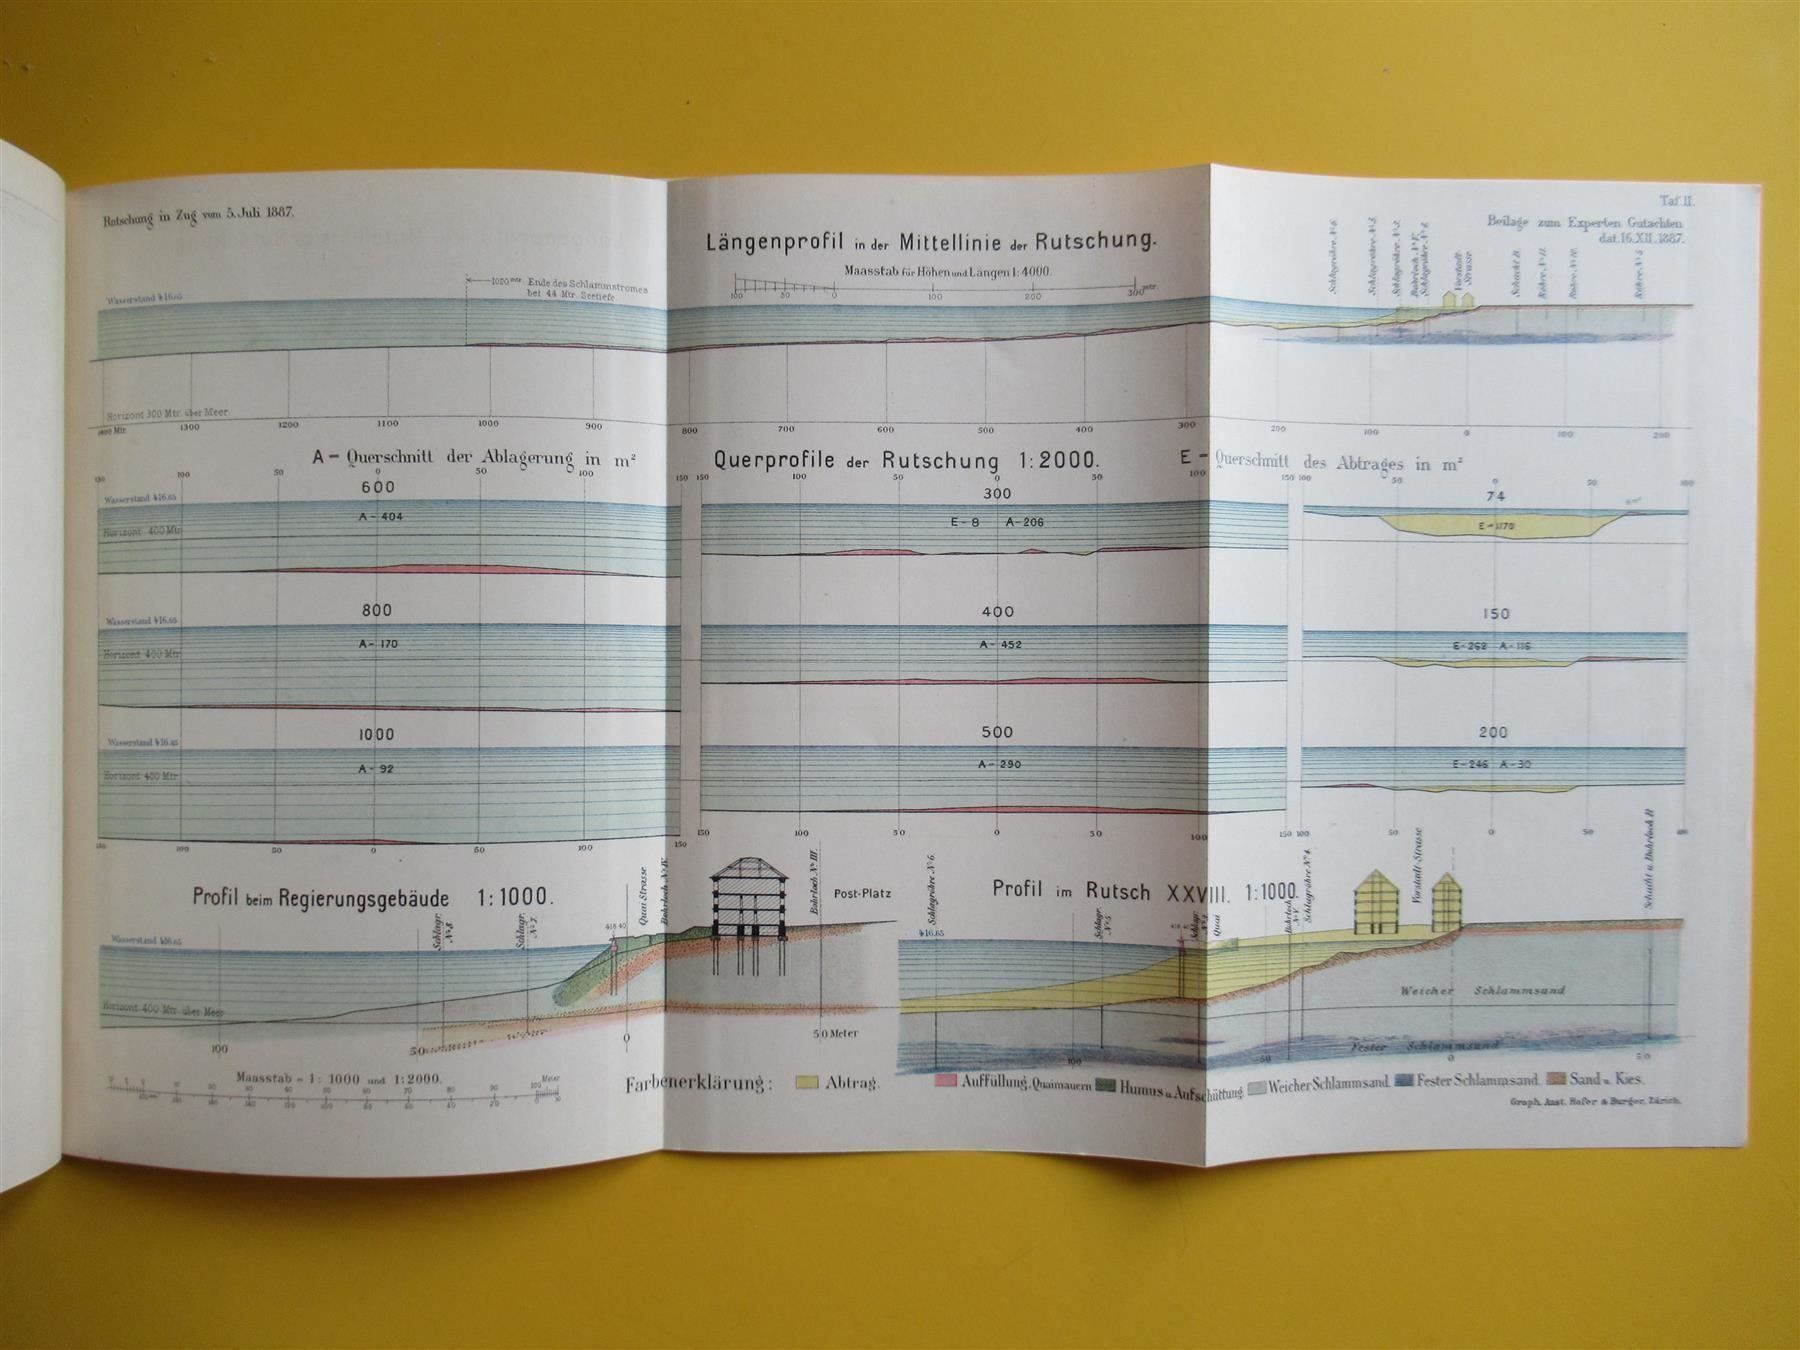 Rutschung in Zug vom 5. Juli 1887.
Taf. II.
Beilage zum Experten Gutachten
dat. 16. XII. 1887.
Längenprofil in der Mittellinie der Rutschung.
Maasstab für Höhen und Längen 1:4000.
100 50 0 100 200 300 mtr.
Wasserstand 416.65
1020 mtr Ende des Schlammstromes
bei 44 Mtr. Seetiefe.
Schlagröhre Nº 6.
Schlagröhre Nº 5.
Vorstadt-
Strasse
Schacht B.
Horizont 300 Mtr. über Meer.
1400 Mtr. 1300 1200 1100 1000 900 800 700 600 500 400 300 200 100 0 100 200
A - Querschnitt der Ablagerung in m²
Querprofile der Rutschung 1:2000.
E - Querschnitt des Abtrages in m²
150 100 50 0 50 100 150
150 100 50 0 50 100 150
100 50 0 50 100
600
Wasserstand 416.65
A - 404
Horizont 400 Mtr.
300
E - 8 A - 206
74
E - 1170
800
Wasserstand 416.65
A - 170
Horizont 400 Mtr.
400
A - 452
150
E - 262 A - 116
1000
Wasserstand 416.65
A - 92
Horizont 400 Mtr.
500
A - 290
200
E - 246 A - 30
150 100 50 0 50 100 150
150 100 50 0 50 100 150
100 50 0 50 100
Profil beim Regierungsgebäude 1:1000.
Wasserstand 416.65
Schlagr.
Nº 8.
Schlagr.
Nº 7.
Quai Strasse
Bohrloch Nº IV.
Bohrloch Nº III.
Post-Platz
418.40
Horizont 400 Mtr. über Meer
100 50 0 50 Meter
Profil im Rutsch XXVIII. 1:1000.
416.65
Schlagröhre Nº 6.
Schlagr.
Nº 5
Quai
Schlagröhre Nº 4.
Vorstadt-Strasse
Schacht u. Bohrloch B
Weicher Schlammsand
Fester Schlammsand
100 50 0 50
Maasstab - 1:1000 und 1:2000.
Farbenerklärung: Abtrag. Auffüllung. Quaimauern Humus u. Aufschüttung. Weicher Schlammsand. Fester Schlammsand. Sand u. Kies.
Graph. Anst. Hofer & Burger, Zürich.